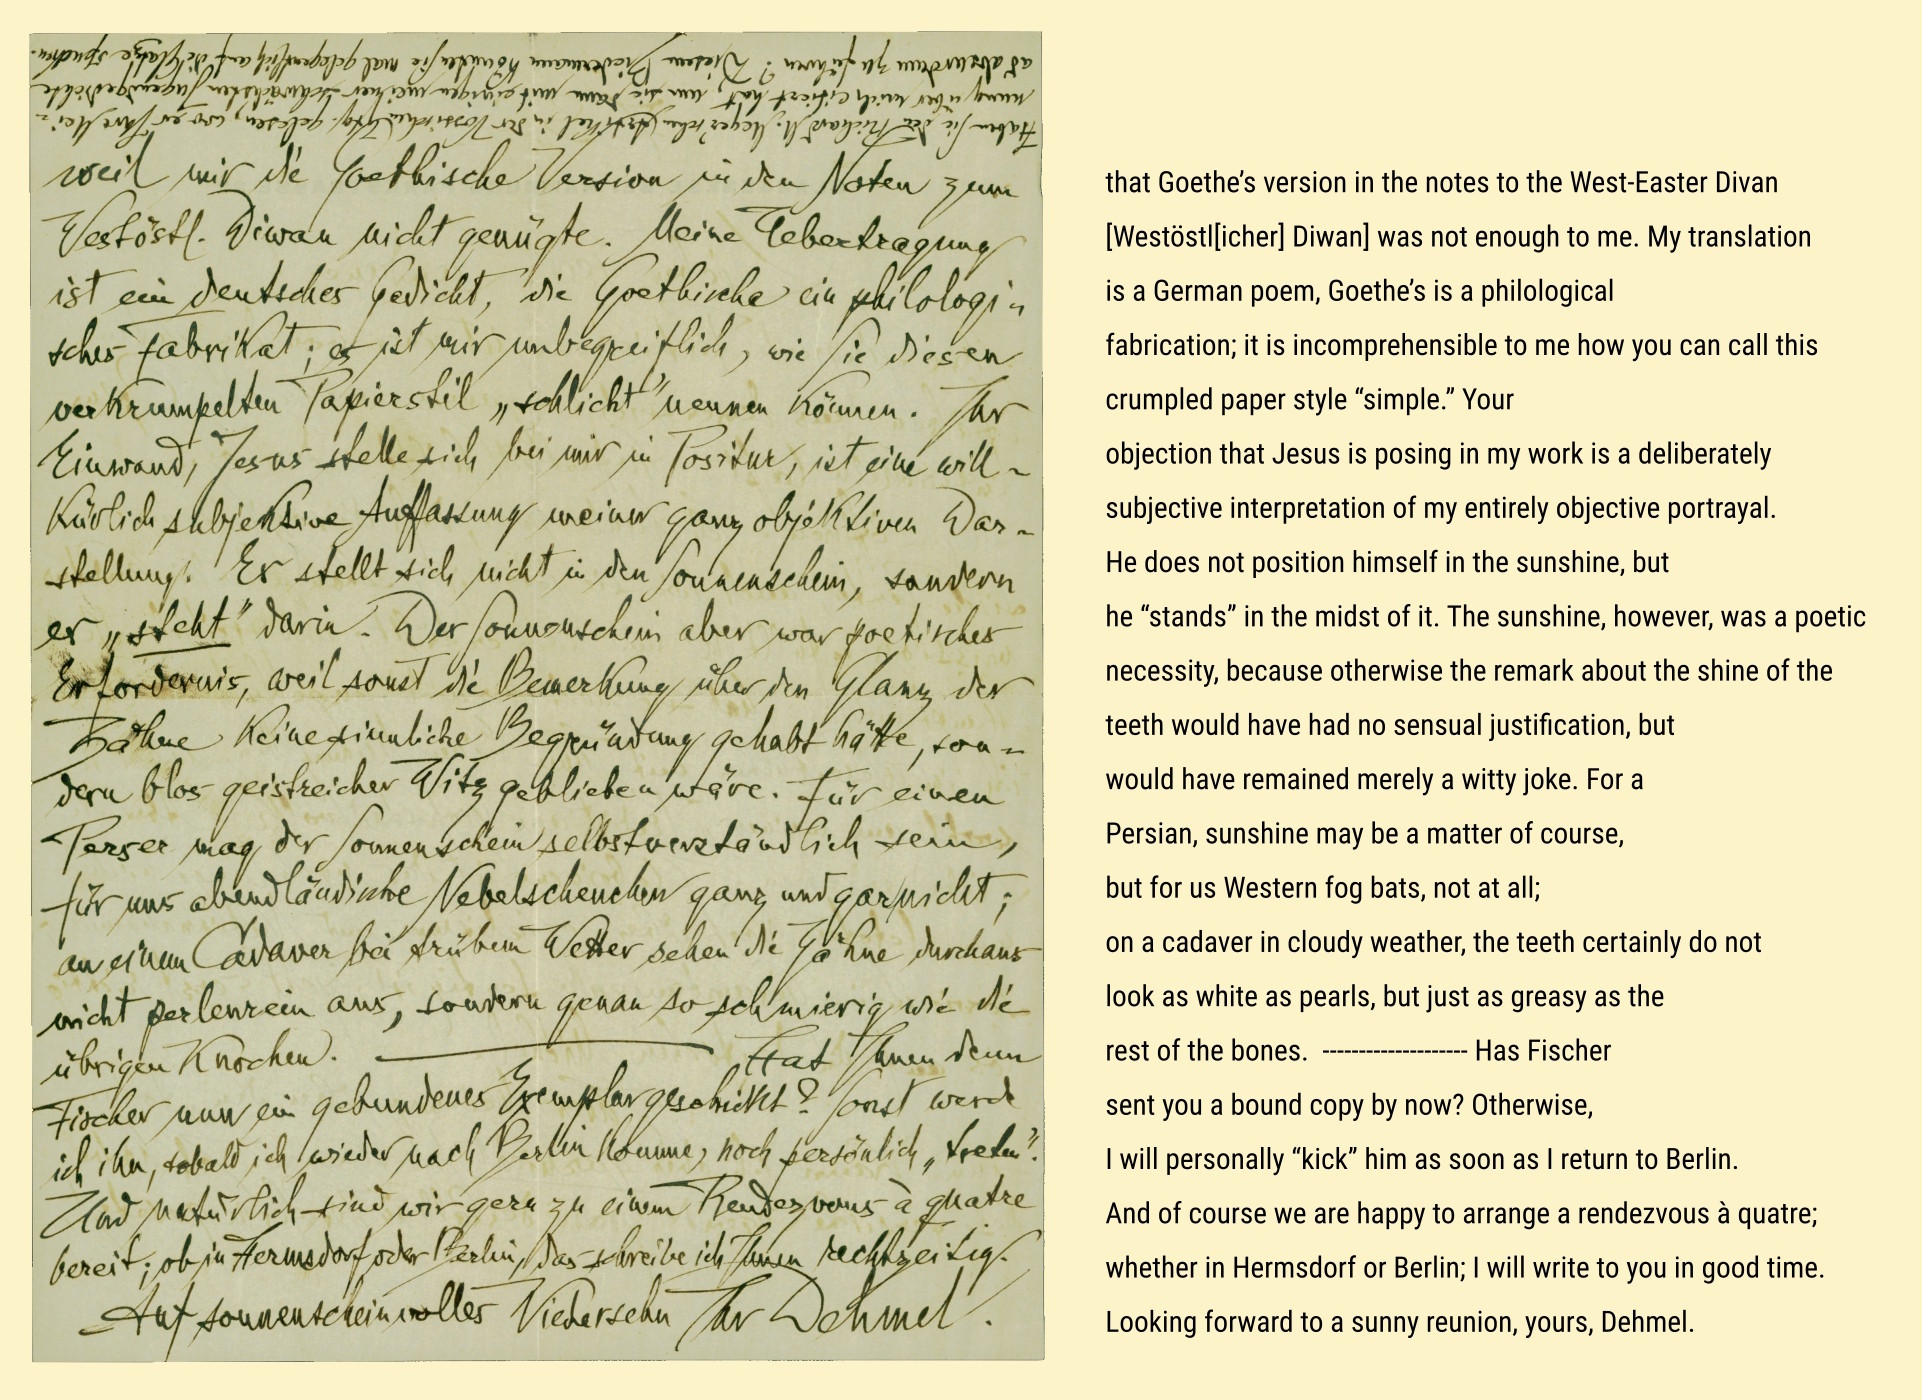 Haben Sie den Richard M. Meyer'schen Artikel in der Vossischen Ztg. gelesen, wo er Ihre Mei-
nung über mich citiert hat, um sie dann mit einigen meiner schwächsten Jugendgedichte
ad absurdum zu führen? Diesem Biedermann könnten Sie mal gelegentlich auf die Glatze spucken.
weil mir die Goethische Version in den Noten zum
Westöstl. Diwan nicht genügte. Meine Uebertragung
ist ein deutsches Gedicht, die Goethische ein philologi-
sches Fabrikat; es ist mir unbegreiflich, wie Sie diesen
verkrumpelten Papierstil „schlicht“ nennen können. Ihr
Einwand, Jesus stelle sich bei mir in Positur, ist eine will-
kürlich subjektive Auffassung meiner ganz objektiven Dar-
stellung. Er stellt sich nicht in den Sonnenschein, sondern
er „steht“ darin. Der Sonnenschein aber war poetisches
Erfordernis, weil sonst die Bemerkung über den Glanz der
Zähne keine sinnliche Begründung gehabt hätte, son-
dern blos geistreicher Witz geblieben wäre. Für einen
Perser mag der Sonnenschein selbstverständlich sein,
für uns abendländische Nebelscheuchen ganz und garnicht;
an einem Cadaver bei trübem Wetter sehen die Zähne durchaus
nicht perlenrein aus, sondern genau so schmierig wie die
übrigen Knochen. ——— Hat Ihnen denn
Fischer nun ein gebundenes Exemplar geschickt? Sonst werde
ich ihn, sobald ich wieder nach Berlin komme, noch persönlich „treten“.
Und natürlich sind wir gern zu einem Rendezvous à quatre
bereit; ob in Hermsdorf oder Berlin, das schreibe ich Ihnen rechtzeitig.
Auf sonnenscheinvolles Wiedersehn Ihr Dehmel.
that Goethe’s version in the notes to the West-Easter Divan
[Westöstl[icher] Diwan] was not enough to me. My translation
is a German poem, Goethe’s is a philological
fabrication; it is incomprehensible to me how you can call this
crumpled paper style “simple.” Your
objection that Jesus is posing in my work is a deliberately
subjective interpretation of my entirely objective portrayal.
He does not position himself in the sunshine, but
he “stands” in the midst of it. The sunshine, however, was a poetic
necessity, because otherwise the remark about the shine of the
teeth would have had no sensual justification, but
would have remained merely a witty joke. For a
Persian, sunshine may be a matter of course,
but for us Western fog bats, not at all;
on a cadaver in cloudy weather, the teeth certainly do not
look as white as pearls, but just as greasy as the
rest of the bones. -------------------- Has Fischer
sent you a bound copy by now? Otherwise,
I will personally “kick” him as soon as I return to Berlin.
And of course we are happy to arrange a rendezvous à quatre;
whether in Hermsdorf or Berlin; I will write to you in good time.
Looking forward to a sunny reunion, yours, Dehmel.